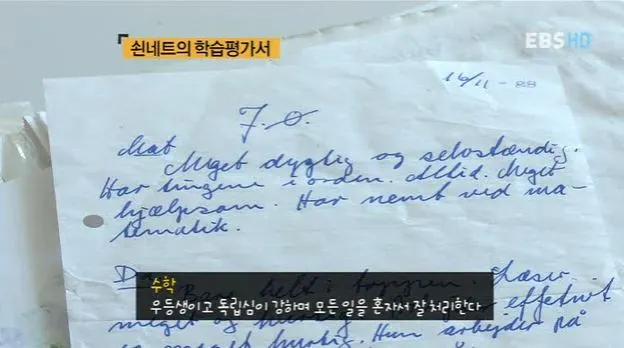 쇤네트의 학습평가서
EBS HD
16/11-88
J.O.
Mat
Meget dygtig og selvstændig.
Har tingene i orden. Altid. Meget
hjælpsom. Har nemt ved ma-
tematik.
helt i toppen. Læser
meget og effektivt
hurtig. Hun arbejder på
수학
우등생이고 독립심이 강하며 모든 일을 혼자서 잘 처리한다